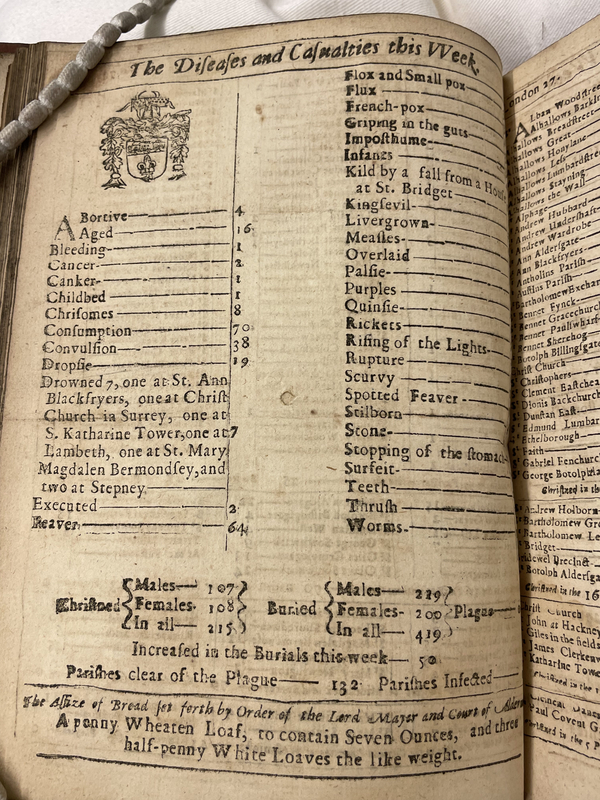 The Diſeaſes and Caſualties this VVeek.
A Bortive 4
Aged 16
Bleeding 1
Cancer 2
Canker 1
Childbed 1
Chriſomes 8
Conſumption 70
Convulſion 38
Dropſie 19
Drowned 7, one at St. Ann
Blackfryers, one at Chriſt
Church in Surrey, one at
S. Katharine Tower, one at 7
Lambeth, one at St. Mary
Magdalen Bermondſey, and
two at Stepney
Executed 2
Feaver 64
Flox and Small pox
Flux
French-pox
Griping in the guts
Impoſthume
Infants
Kild by a fall from a Houſe
at St. Bridget
Kingſevil
Livergrown
Meaſles
Overlaid
Palſie
Purples
Quinſie
Rickets
Riſing of the Lights
Rupture
Scurvy
Spotted Feaver
Stilborn
Stone
Stopping of the ſtomach
Surfeit
Teeth
Thruſh
Worms
Chriſtned { Males 107 Females 108 In all 215 } Buried { Males 219 Females 200 In all 419 } Plague
Increaſed in the Burials this week 50
Pariſhes clear of the Plague 132 Pariſhes Infected
The Aſſize of Bread ſet forth by Order of the Lord Mayor and Court of
A penny Wheaten Loaf, to contain Seven Ounces, and three
half-penny White Loaves the like weight.
London 27
Alban Woodſtree
Alhallows Barkin
Breadſtreet
Great
Honylane
Leſs
Lumbardſtree
Stayning
the Wall
Alphage
Andrew Hubbard
Andrew Underſhaft
Andrew Wardrobe
Ann Alderſgate
Ann Blackfryers
Antholins Pariſh
Auſtins Pariſh
Bartholomew Exchan
Bennet Fynck
Bennet Gracechurch
Bennet Paulſwharf
Bennet Sherehog
Botolph Billingſgate
Chriſt Church
Chriſtophers
Clement Eaſtchea
Dionis Backchurch
Dunſtan Eaſt
Edmund Lumbar
Ethelborough
Faith
Gabriel Fenchurc
George Botolphla
Chriſtned in th
Andrew Holborn
Bartholomew Gre
Bartholomew Le
Bridget
Bridewel Precinct
Botolph Alderſga
Chriſtned in the 16
Chriſt Church
John at Hackney
Giles in the fields
James Clerkenw
Katharine Towe
Chriſtned in the
Clement Danes
Paul Covent G
Chriſtned in the 5 P